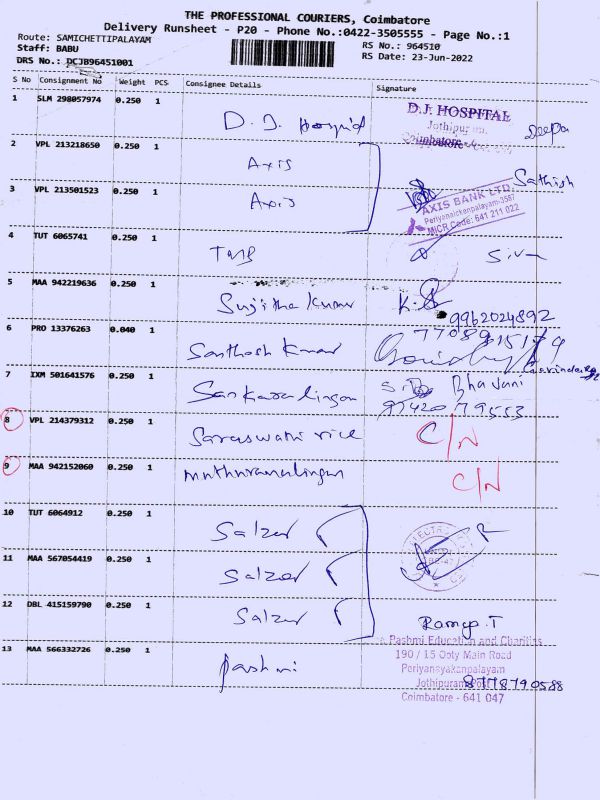 THE PROFESSIONAL COURIERS, Coimbatore
Delivery Runsheet - P20 - Phone No.:0422-3505555 - Page No.:1
Route: SAMICHETTIPALAYAM
RS No.: 964510
Staff: BABU
RS Date: 23-Jun-2022
DRS No.: DCJB96451001
S No Consignment No Weight PCS Consignee Details Signature
1 SLM 298057974 0.250 1 D.J. Hospital D.J. HOSPITAL
Jothipuram,
Coimbatore Deepa
2 VPL 213218650 0.250 1 Axis
Sathish
3 VPL 213501523 0.250 1 Axis AXIS BANK LTD.
Periyanaickenpalayam-3587
MICR Code: 641 211 022
4 TUT 6065741 0.250 1 TMB Siva
5 MAA 942219636 0.250 1 Sujitha Kumar K.
9962024892
6 PRO 13376263 0.040 1 Santhosh Kumar
7 IXM 501641576 0.250 1 Sankaralingam Bhavani
8 VPL 214379312 0.250 1 Saraswathi rice C/N
9 MAA 942152060 0.250 1 Muthuramalingam C/N
10 TUT 6064912 0.250 1 Salzer
11 MAA 567054419 0.250 1 Salzer
12 DBL 415159790 0.250 1 Salzer
Ramya.T
13 MAA 566332726 0.250 1 Pashmi
Pashmi Education and Charities
190 / 15 Ooty Main Road
Periyanayakanpalayam
Jothipuram Post 8778790588
Coimbatore - 641 047